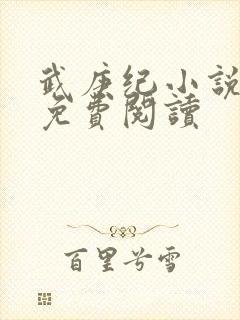 武庚纪小説
免費閱讀
百里兮雪